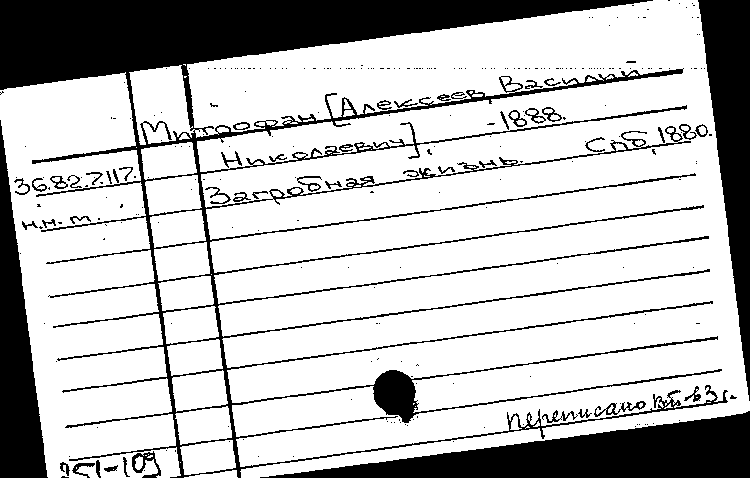 Митрофан [Алексеев, Василий
Николаевич], -1888.
36.82.7.117.
Загробная жизнь. Спб, 1880.
н.н.т.
переписано
251-109